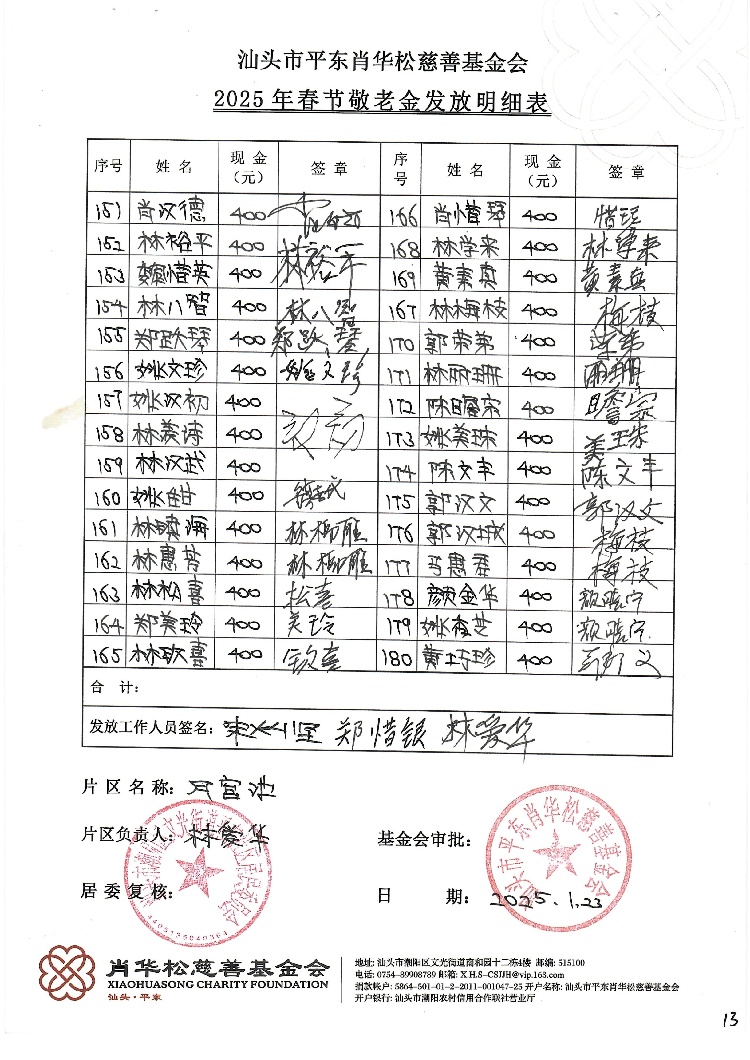 汕头市平东肖华松慈善基金会
2025年春节敬老金发放明细表
序号 姓名 现金（元） 签章 序号 姓名 现金（元） 签章
151 肖汉德 400 166 肖惜琴 400 惜琴
152 林裕平 400 林裕平 168 林学来 400 林学来
153 惜英 400 169 黄素真 400 黄素真
154 林八智 400 林八智 167 林梅枝 400 梅枝
155 郑跃琴 400 郑跃琴 170 郭荣弟 400
156 姚文珍 400 171 林丽珊 400 丽珊
157 姚汉初 400 汉初 172 陈睿宗 400 睿宗
158 林美诗 400 173 姚美珠 400 美珠
159 林汉武 400 174 陈文丰 400 陈文丰
160 姚 400 175 郭汉文 400 郭汉文
161 林 海 400 林柳 176 郭汉城 400 梅枝
162 林惠 400 林柳 177 马惠 400 梅枝
163 林松喜 400 松喜 178 颜金华 400 颜晓宁
164 郑美玲 400 美玲 179 姚 芝 400 颜晓宁
165 林钦喜 400 钦喜 180 黄巧珍 400
合 计：
发放工作人员签名： 郑惜银 林爱华
片区名称：宫池
片区负责人：林爱华 基金会审批：
居委复核： 日 期：2025.1.23
汕头市平东肖华松慈善基金会
肖华松慈善基金会
XIAOHUASONG CHARITY FOUNDATION
汕头·平东
地址: 汕头市潮阳区文光街道南和园十二栋4楼 邮编: 515100
电话: 0754-89908789 邮箱: X.H.S-CSJJH@vip.163.com
捐款帐户: 5864-501-01-2-2011-001047-25 开户名称: 汕头市平东肖华松慈善基金会
开户银行: 汕头市潮阳农村信用合作联社营业厅
13